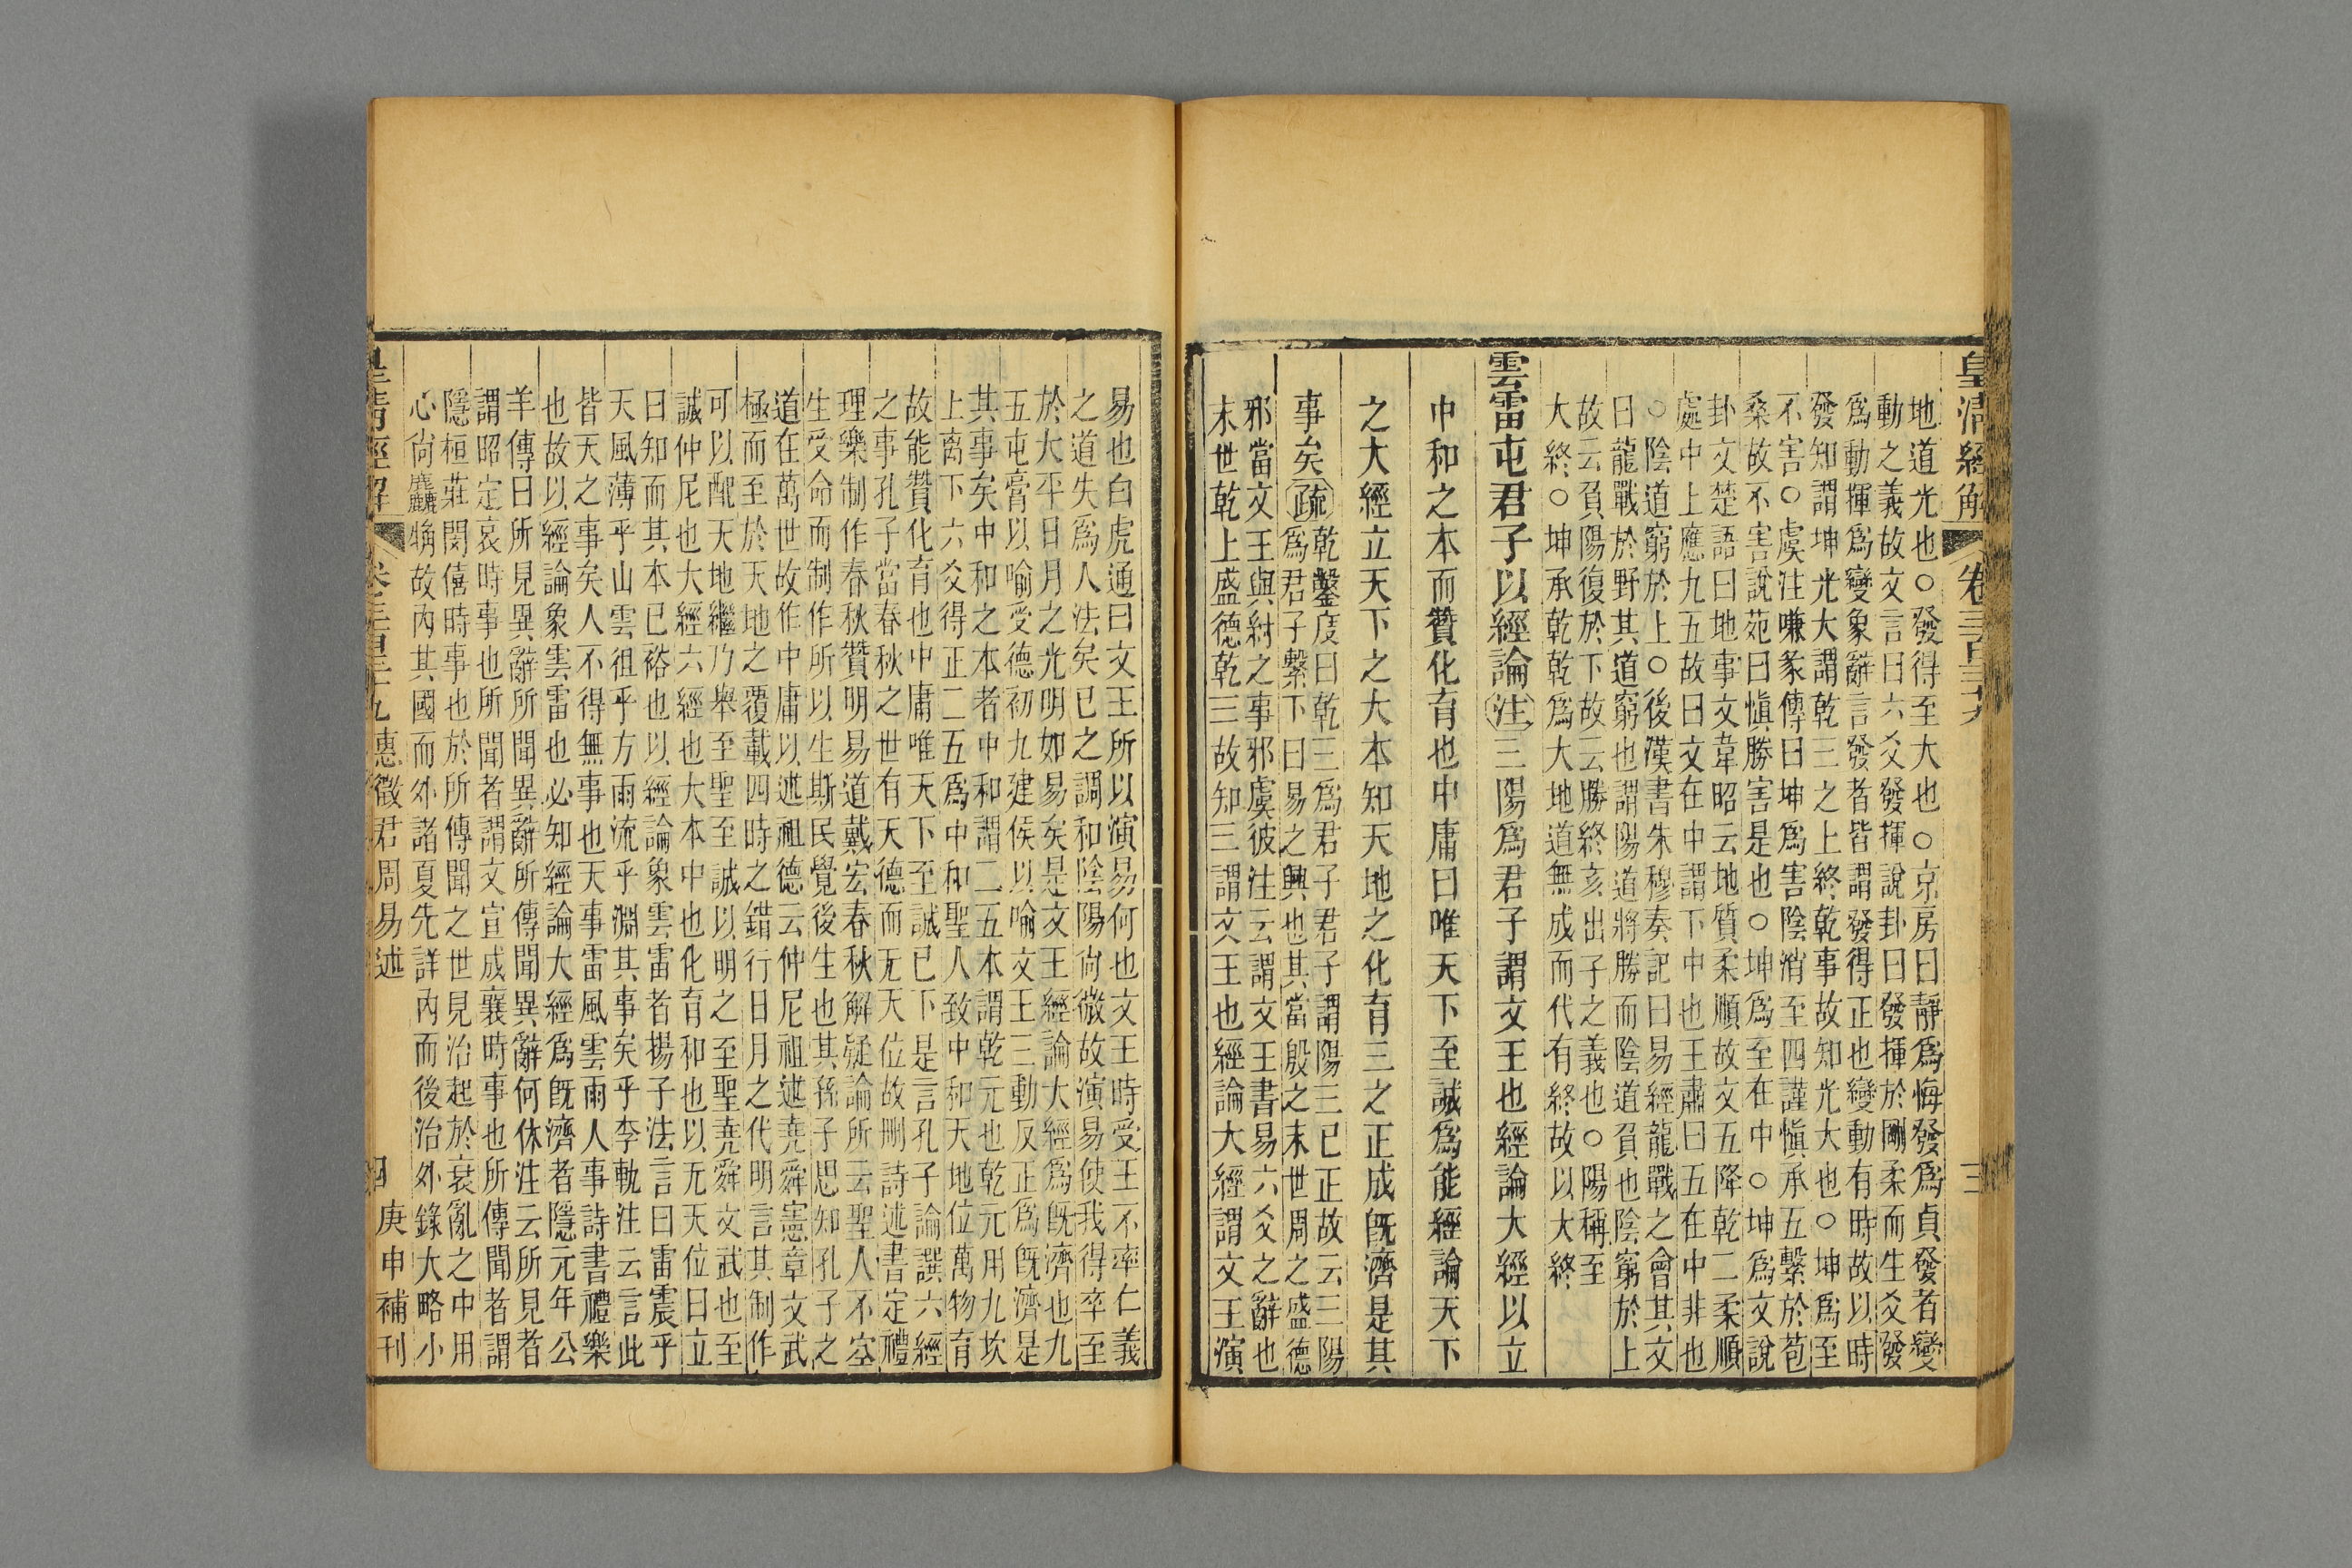 皇清經解
卷三百三十九
三
地道光也○發得至大也○京房曰靜爲悔發爲貞發者變
動之義故文言曰六爻發揮說卦曰發揮於剛柔而生爻發
爲動揮爲變象辭言發者皆謂發得正也變動有時故以時
發知謂坤光大謂乾三之上終乾事故知光大也○坤爲至
不害○虞注嗛彖傳曰坤爲害陰消至四謹愼承五繫於苞
桑故不害說苑曰愼勝害是也○坤爲至在中○坤爲文說
卦文楚語曰地事文韋昭云地質柔順故文五降乾二柔順
處中上應九五故曰文在中謂下中也王肅曰五在中非也
○陰道窮於上○後漢書朱穆奏記曰易經龍戰之會其文
曰龍戰於野其道窮也謂陽道將勝而陰道負也陰窮於上
故云負陽復於下故云勝終亥出子之義也○陽稱至
大終○坤承乾乾爲大地道無成而代有終故以大終
雲雷屯君子以經論注三陽爲君子謂文王也經論大經以立
中和之本而贊化育也中庸曰唯天下至誠爲能經論天下
之大經立天下之大本知天地之化育三之正成旣濟是其
事矣疏乾鑿度曰乾三爲君子君子謂陽三已正故云三陽
爲君子繫下曰易之興也其當殷之末世周之盛德
邪當文王與紂之事邪虞彼注云謂文王書易六爻之辭也
末世乾上盛德乾三故知三謂文王也經論大經謂文王演
易也白虎通曰文王所以演易何也文王時受王不率仁義
之道失爲人法矣已之調和陰陽尙微故演易使我得卒至
於大平日月之光明如易矣是文王經論大經爲旣濟也九
五屯膏以喻受德初九建侯以喻文王三動反正爲旣濟是
其事矣中和之本者中和謂二五本謂乾元也乾元用九坎
上离下六爻得正二五爲中和聖人致中和天地位萬物育
故能贊化育也中庸唯天下至誠已下是言孔子論譔六經
之事孔子當春秋之世有天德而无天位故刪詩述書定禮
理樂制作春秋贊明易道戴宏春秋解疑論所云聖人不空
生受命而制作所以生斯民覺後生也其孫子思知孔子之
道在萬世故作中庸以述祖德云仲尼祖述堯舜憲章文武
極而至於天地之覆載四時之錯行日月之代明言其制作
可以配天地繼乃舉至聖至誠以明之至聖堯舜文武也至
誠仲尼也大經六經也大本中也化育和也以无天位曰立
曰知而其本已裕也以經論象雲雷者揚子法言曰雷震乎
天風薄乎山雲徂乎方雨流乎淵其事矣乎李軌注云言此
皆天之事矣人不得無事也天事雷風雲雨人事詩書禮樂
也故以經論象雲雷也必知經論大經爲旣濟者隱元年公
羊傳曰所見異辭所聞異辭所傳聞異辭何休注云所見者
謂昭定哀時事也所聞者謂文宣成襄時事也所傳聞者謂
隱桓莊閔僖時事也於所傳聞之世見治起於衰亂之中用
心尙麤觕故內其國而外諸夏先詳內而後治外錄大略小
皇清經解
卷三百三十九
惠徵君周易述
四
庚申補刊